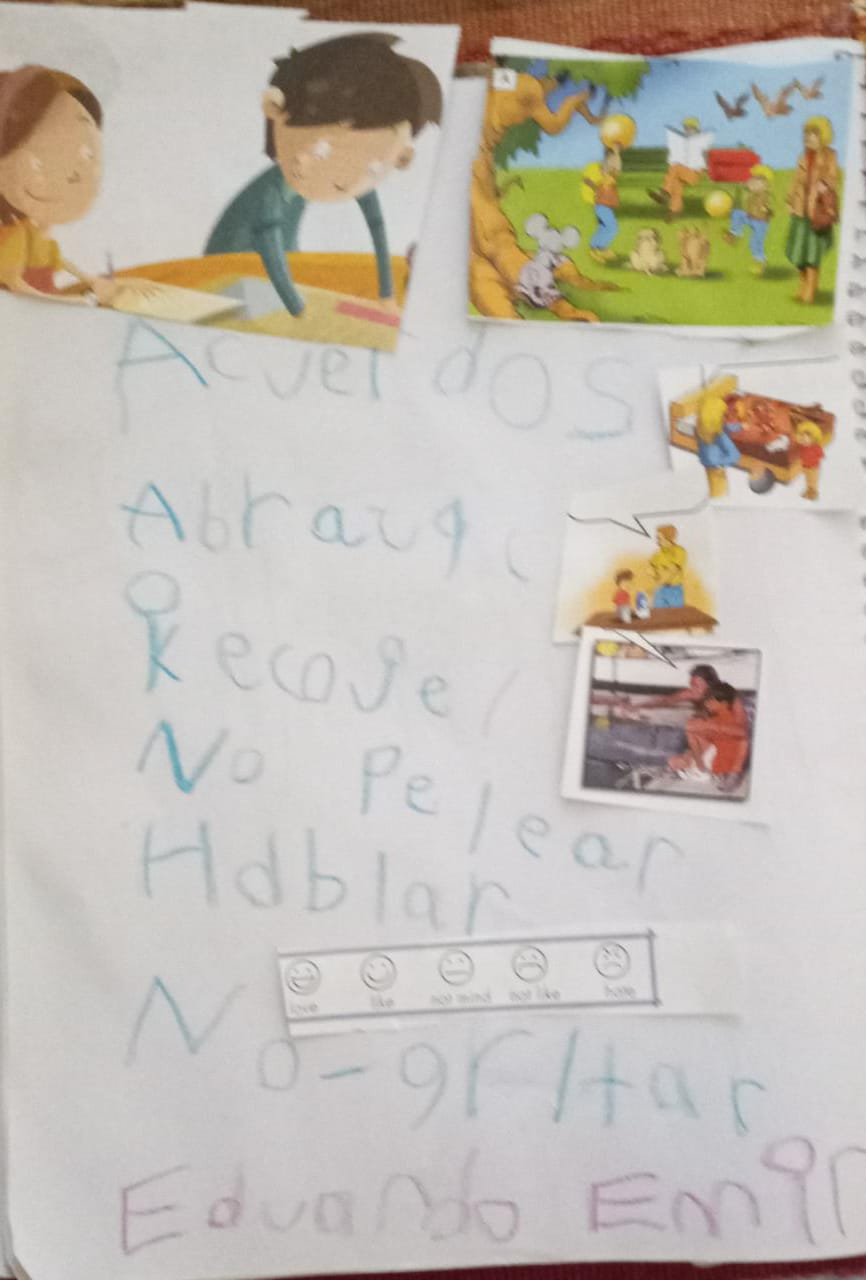 A
Acuerdos
Abraza
Recoger
No Pelear
Hablar
love like not mind not like hate
No-gritar
Eduardo Emir